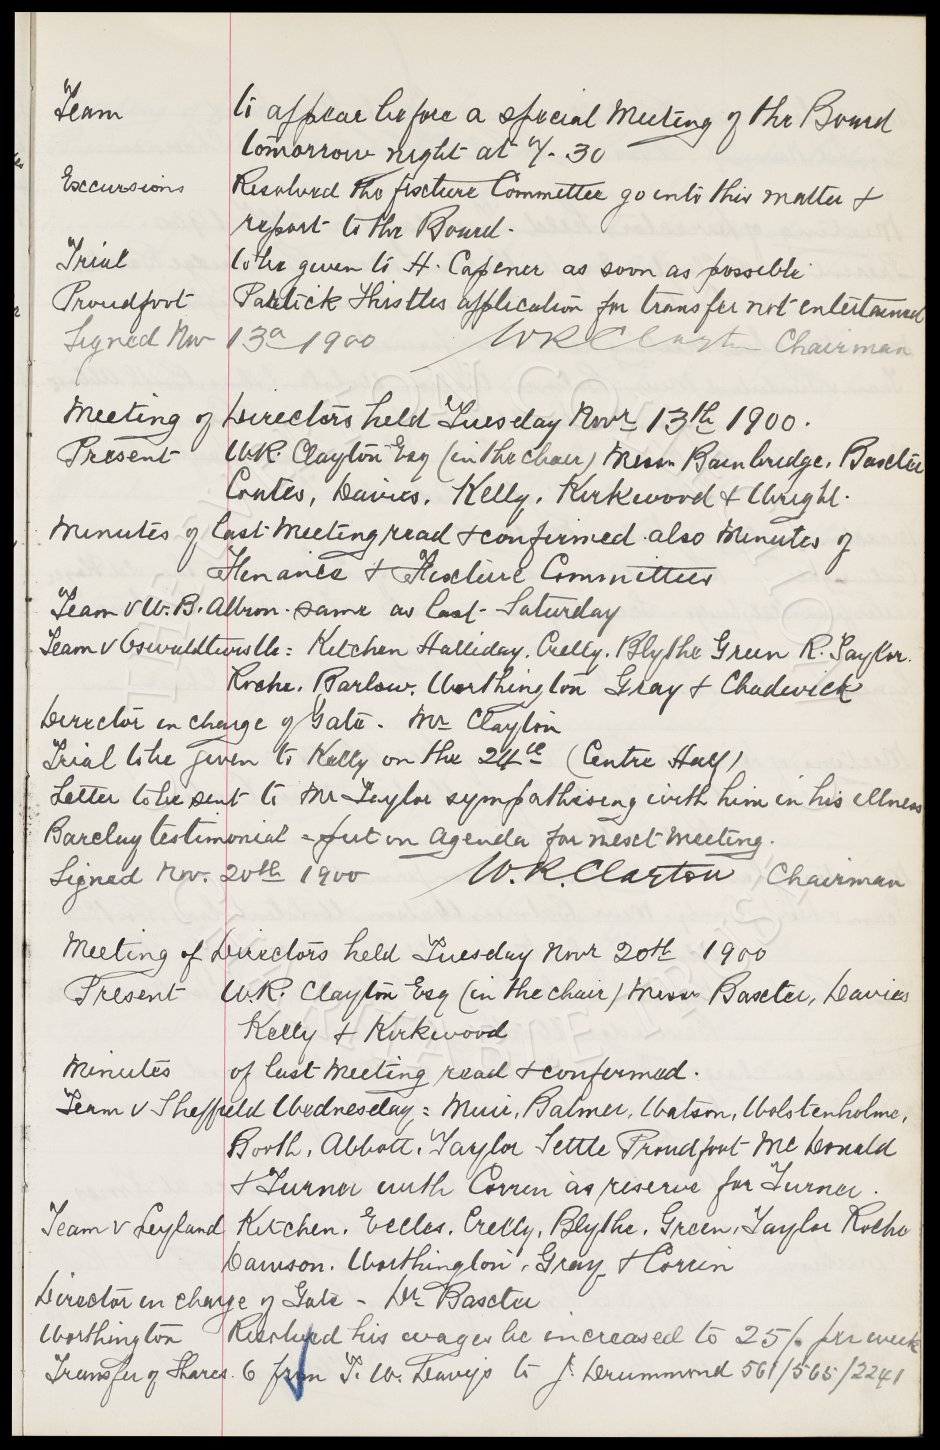 Team to appear before a special Meeting of the Board
tomorrow night at 7-30
Excursions Resolved the fixture Committee go into this matter &
report to the Board.
Trial to be given to H. Capener as soon as possible
Proudfoot Patrick Thistles application for transfer not entertained
Signed Nov 13th 1900 W R Clayton Chairman
Meeting of Directors held Tuesday Novr 13th 1900.
Present W.R. Clayton Esq (in the chair) Messrs Bainbridge, Baxter
Coates, Davies, Kelly, Kirkwood & Wright.
Minutes of last Meeting read & confirmed also Minutes of
Finance & Fixture Committees
Team v W.B. Albion - same as last Saturday
Team v Oswaldtwistle: Kitchen Halliday, Crelly, Blythe Green R. Taylor.
Roche, Barlow, Worthington Gray & Chadwick
Director in charge of Gate - Mr Clayton
Trial to be given to Kelly on the 24th (Centre Half)
Letter to be sent to Mr Taylor sympathising with him in his illness
Barclay testimonial - put on Agenda for next Meeting.
Signed Nov. 20th 1900 W.R. Clayton Chairman
Meeting of Directors held Tuesday Novr 20th 1900
Present W.R. Clayton Esq (in the chair) Messrs Baxter, Davies
Kelly & Kirkwood
Minutes of last Meeting read & confirmed.
Team v Sheffield Wednesday: Muir, Balmer, Watson, Wolstenholme,
Booth, Abbott, Taylor Settle Proudfoot McDonald
& Turner with Corrin as reserve for Turner.
Team v Leyland Kitchen, Eccles, Crelly, Blythe, Green, Taylor Roche
Dawson, Worthington, Gray & Corrin
Director in charge of Gate - Dr Baxter
Worthington Resolved his wages be increased to 25/- per week
Transfer of Shares. 6 from T. W. Davies to J. Drummond 561/565/2241